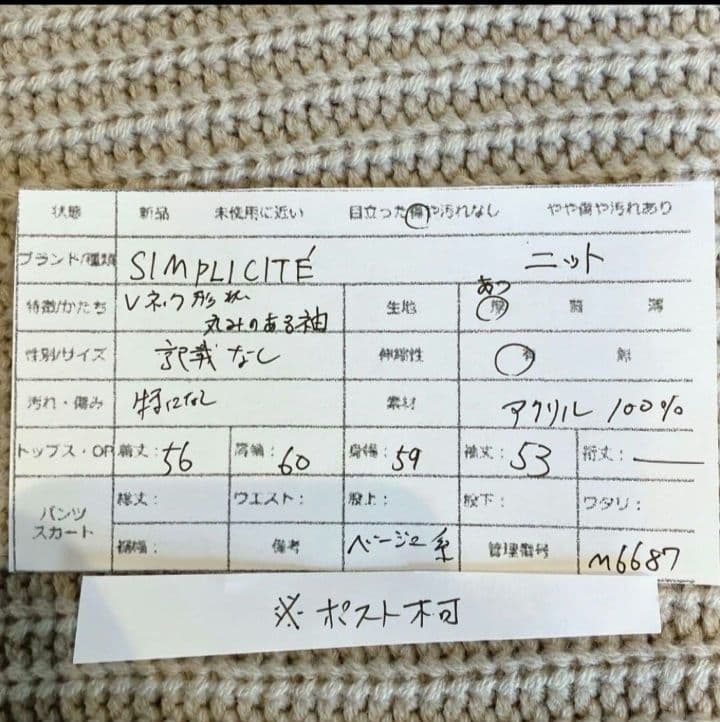 状態 新品 未使用に近い 目立った傷や汚れなし やや傷や汚れあり
ブランド/種類 SIMPLICITÉ ニット
特徴/かたち Vネック形状 丸みのある袖 生地 あつ 厚 普 薄
性別/サイズ 記載なし 伸縮性 有 無
汚れ・傷み 特になし 素材 アクリル 100%
トップス・OP 着丈: 56 肩幅: 60 身幅: 59 袖丈: 53 裄丈:
パンツ スカート 総丈: ウエスト: 股上: 股下: ワタリ:
裾幅: 備考 ベージュ系 管理番号 m6687
※ポスト不可